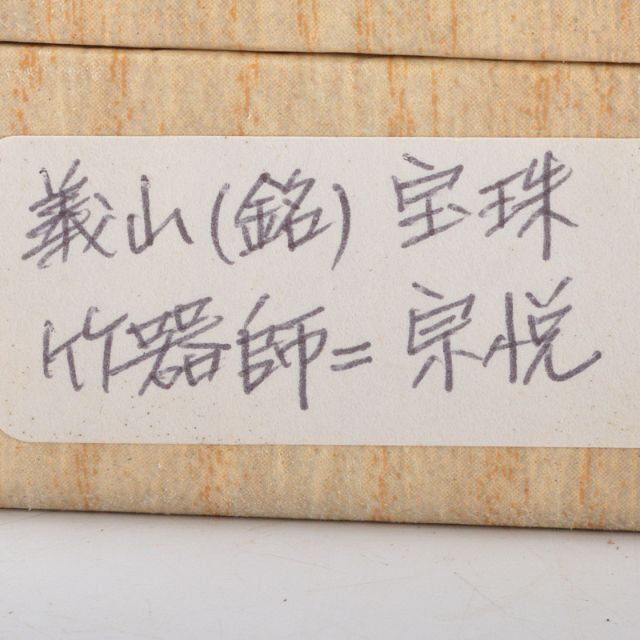 義山(銘) 宝珠
竹器師=宗悦